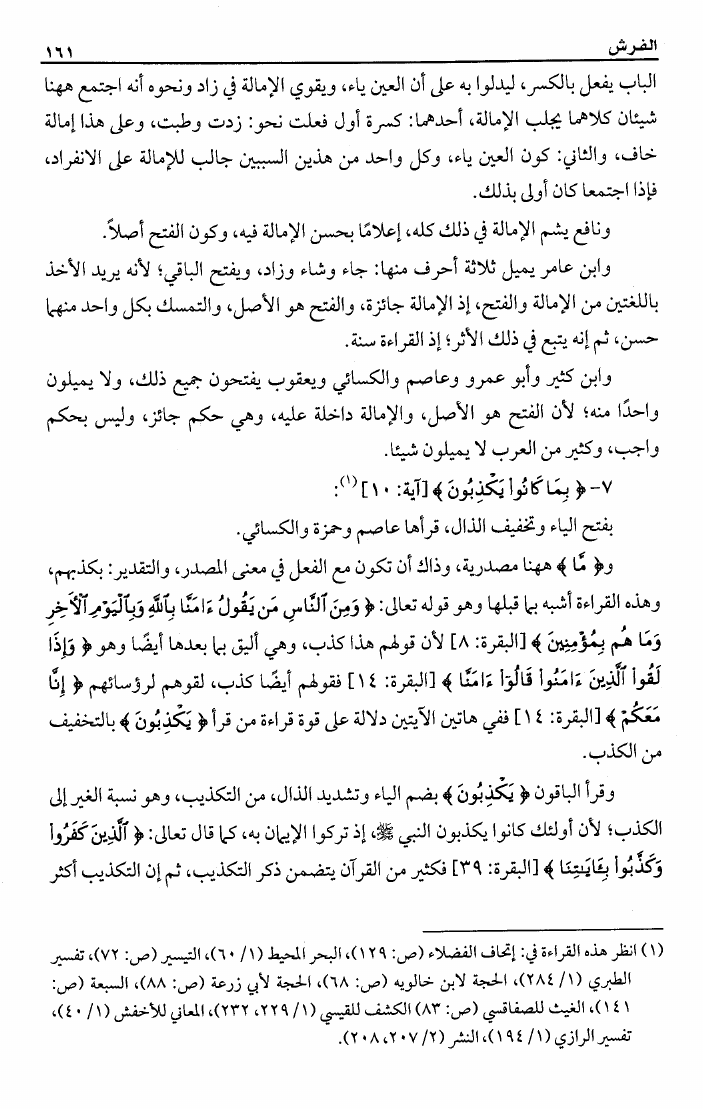 الفرش ١٦١
الباب يفعل بالكسر، ليدلوا به على أن العين ياء، ويقوي الإمالة في زاد ونحوه أنه اجتمع ههنا
شيئان كلاهما يجلب الإمالة، أحدهما: كسرة أول فعلت نحو: زدت وطبت، وعلى هذا إمالة
خاف، والثاني: كون العين ياء، وكل واحد من هذين السببين جالب للإمالة على الانفراد،
فإذا اجتمعا كان أولى بذلك.
ونافع يشم الإمالة في ذلك كله، إعلامًا بحسن الإمالة فيه، وكون الفتح أصلاً.
وابن عامر يميل ثلاثة أحرف منها: جاء وشاء وزاد، ويفتح الباقي؛ لأنه يريد الأخذ
باللغتين من الإمالة والفتح، إذ الإمالة جائزة، والفتح هو الأصل، والتمسك بكل واحد منهما
حسن، ثم إنه يتبع في ذلك الأثر؛ إذ القراءة سنة.
وابن كثير وأبو عمرو وعاصم والكسائي ويعقوب يفتحون جميع ذلك، ولا يميلون
واحدًا منه؛ لأن الفتح هو الأصل، والإمالة داخلة عليه، وهي حكم جائز، وليس بحكم
واجب، وكثير من العرب لا يميلون شيئا.
٧- ﴿ بِمَا كَانُوا۟ يَكْذِبُونَ ﴾ [آية: ١٠] (١):
بفتح الياء وتخفيف الذال، قرأها عاصم وحمزة والكسائي.
و﴿ مَّا ﴾ ههنا مصدرية، وذاك أن تكون مع الفعل في معنى المصدر، والتقدير: بكذبهم،
وهذه القراءة أشبه بما قبلها وهو قوله تعالى: ﴿ وَمِنَ ٱلنَّاسِ مَن يَقُولُ ءَامَنَّا بِٱللَّهِ وَبِٱلْيَوْمِ ٱلْأَخِرِ
وَمَا هُم بِمُؤْمِنِينَ ﴾ [البقرة: ٨] لأن قولهم هذا كذب، وهي أليق بما بعدها أيضًا وهو ﴿ وَإِذَا
لَقُوا۟ ٱلَّذِينَ ءَامَنُوا۟ قَالُوٓا۟ ءَامَنَّا ﴾ [البقرة: ١٤] فقولهم أيضًا كذب، لقوهم لرؤسائهم ﴿ إِنَّا
مَعَكُمْ ﴾ [البقرة: ١٤] ففي هاتين الآيتين دلالة على قوة قراءة من قرأ ﴿ يَكْذِبُونَ ﴾ بالتخفيف
من الكذب.
وقرأ الباقون ﴿ يَكْذِبُونَ ﴾ بضم الياء وتشديد الذال، من التكذيب، وهو نسبة الغير إلى
الكذب؛ لأن أولئك كانوا يكذبون النبي ﷺ، إذ تركوا الإيمان به، كما قال تعالى: ﴿ ٱلَّذِينَ كَفَرُوا۟
وَكَذَّبُوا۟ بِـَٔايَـٰتِنَا ﴾ [البقرة: ٣٩] فكثير من القرآن يتضمن ذكر التكذيب، ثم إن التكذيب أكثر
(١) انظر هذه القراءة في: إتحاف الفضلاء (ص: ١٢٩)، البحر المحيط (١/ ٦٠)، التيسير (ص: ٧٢)، تفسير
الطبري (١/ ٢٨٤)، الحجة لابن خالويه (ص: ٦٨)، الحجة لأبي زرعة (ص: ٨٨)، السبعة (ص:
١٤١)، الغيث للصفاقسي (ص: ٨٣) الكشف للقيسي (١/ ٢٢٩، ٢٣٢)، المعاني للأخفش (١/ ٤٠)،
تفسير الرازي (١/ ١٩٤)، النشر (٢/ ٢٠٧، ٢٠٨).